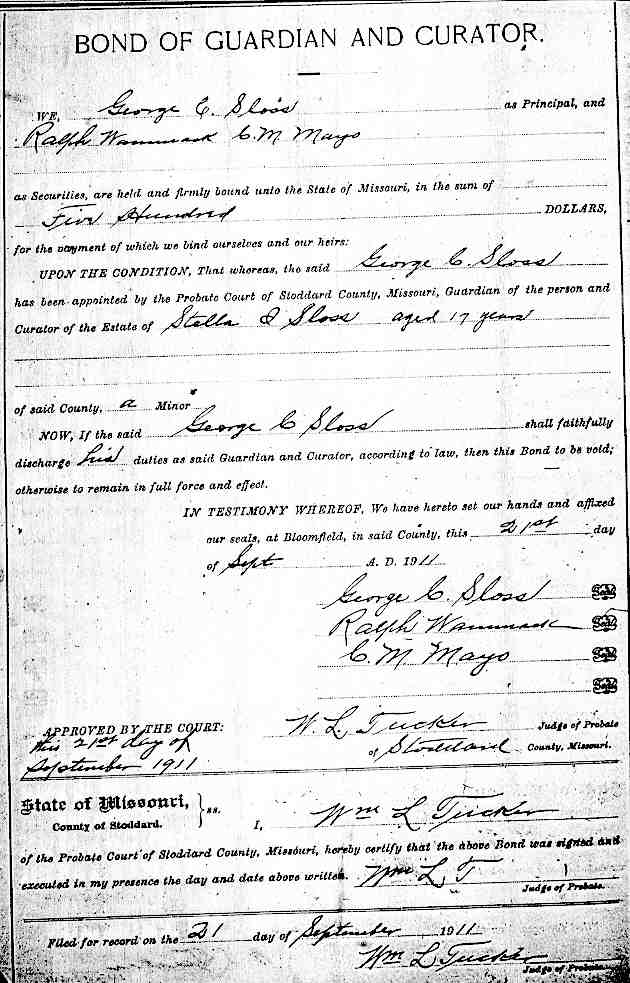 BOND OF GUARDIAN AND CURATOR.
WE, George C. Sloss as Principal, and
Ralph Wammack C. M Mayo
as Securities, are held and firmly bound unto the State of Missouri, in the sum of
Five Hundred DOLLARS,
for the payment of which we bind ourselves and our heirs:
UPON THE CONDITION, That whereas, the said George C. Sloss
has been appointed by the Probate Court of Stoddard County, Missouri, Guardian of the person and
Curator of the Estate of Stella Sloss aged 17 years
of said County, a Minor
NOW, If the said George C Sloss shall faithfully
discharge his duties as said Guardian and Curator, according to law, then this Bond to be void;
otherwise to remain in full force and effect.
IN TESTIMONY WHEREOF, We have hereto set our hands and affixed
our seals, at Bloomfield, in said County, this 21st day
of Sept A. D. 1911
George C. Sloss Seal
Ralph Wammack Seal
C. M. Mayo Seal
Seal
APPROVED BY THE COURT: W. L. Tucker Judge of Probate
this 21st day of of Stoddard County, Missouri.
September 1911
State of Missouri, } ss.
County of Stoddard. I, Wm L Tucker
of the Probate Court of Stoddard County, Missouri, hereby certify that the above Bond was signed and
executed in my presence the day and date above written. Wm L T
Judge of Probate.
Filed for record on the 21 day of September 1911
Wm L Tucker
Judge of Probate.